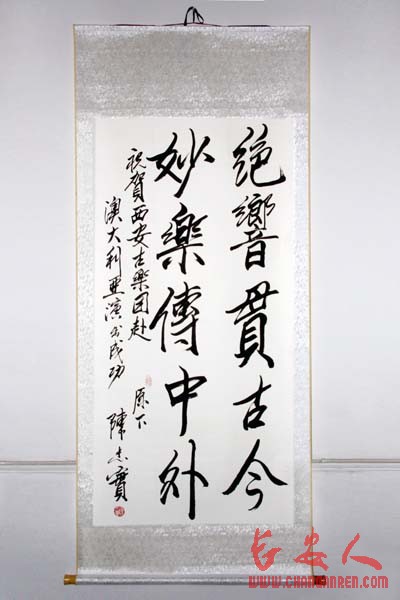 絶響貫古今
妙樂傳中外
祝賀西安古樂团赴
澳大利亞演出成功
原下
陳忠實
长安人
WWW.CHANGANREN.COM